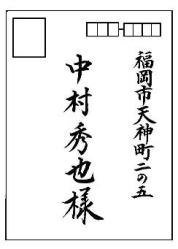 福岡市天神町二の五
中村秀也様